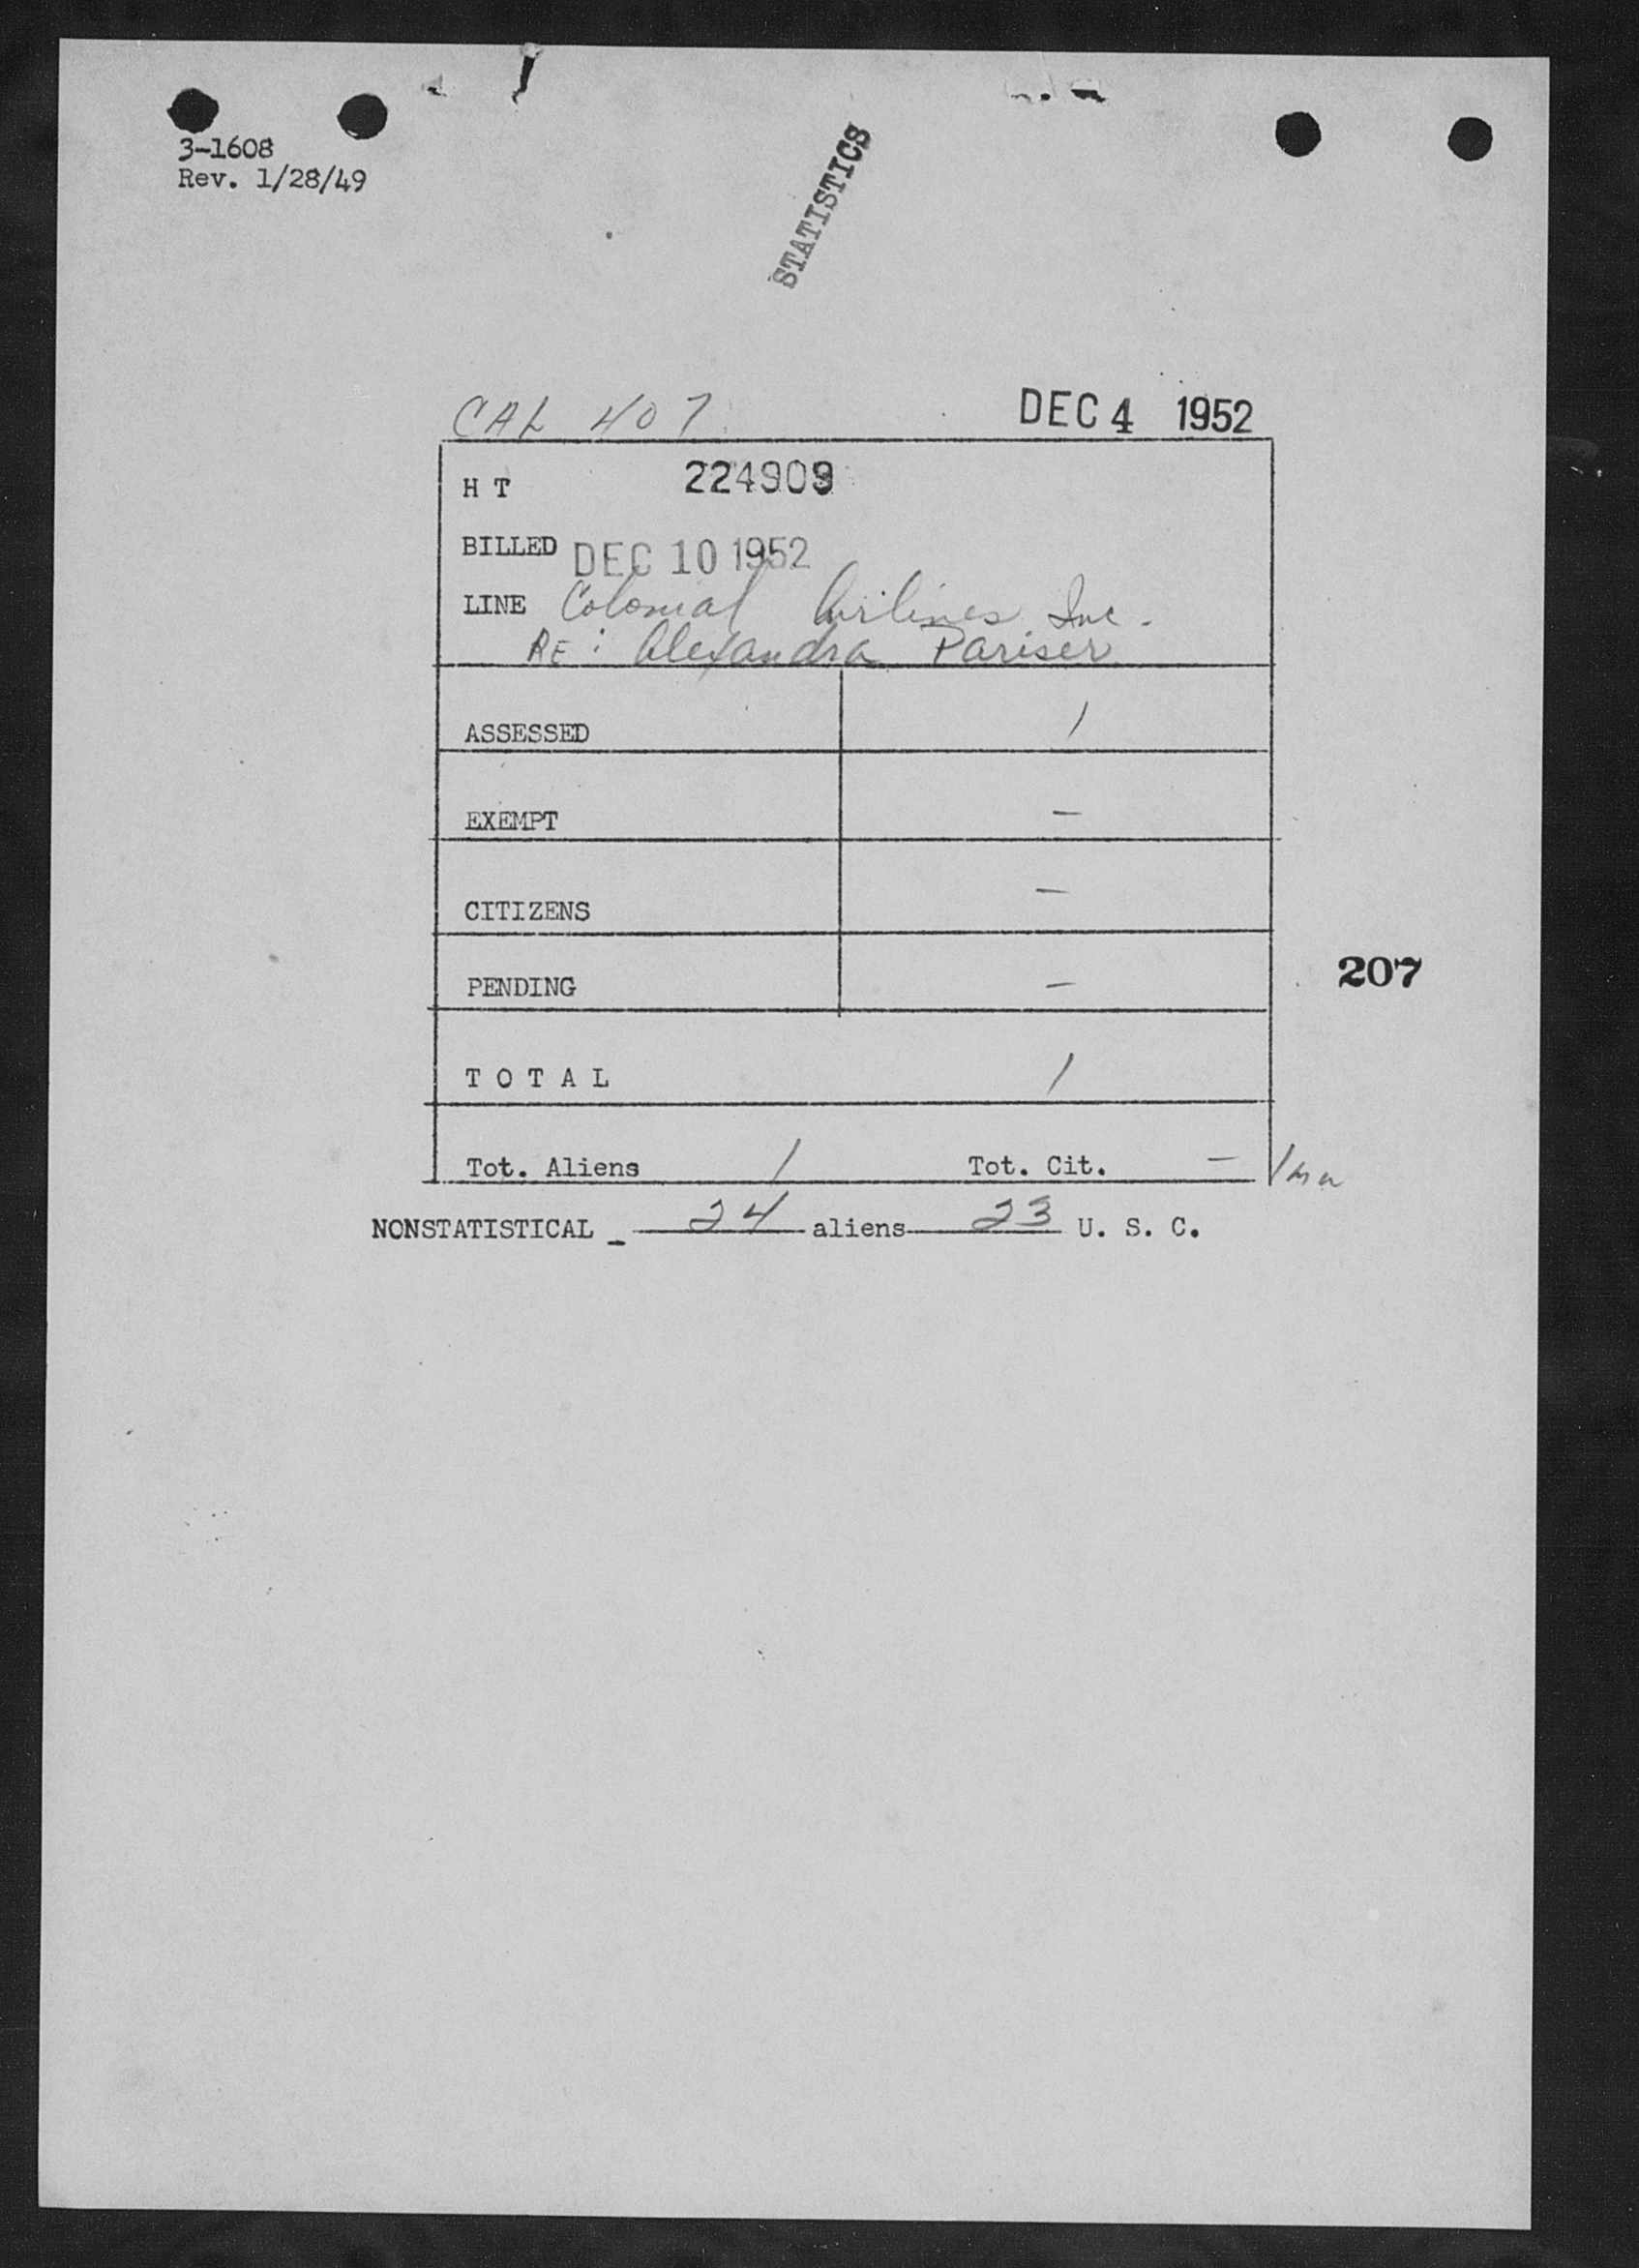 3-1608
Rev. 1/28/49
STATISTICS
CAL 407 DEC 4 1952
H T 224909
BILLED DEC 10 1952
LINE Colonial Airlines Inc.
RE: Alexandra Pariser
ASSESSED 1
EXEMPT -
CITIZENS -
PENDING -
207
T O T A L 1
Tot. Aliens 1 Tot. Cit. -
NONSTATISTICAL - 24 aliens 23 U. S. C.